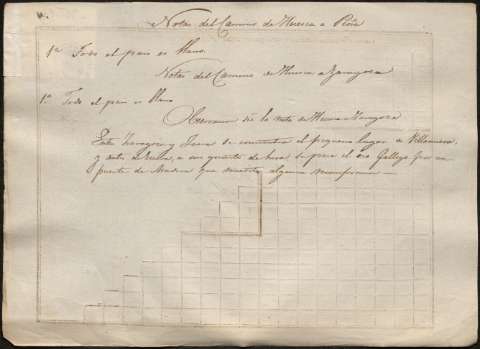 Notas del Camino de Huesca a Pina
1ª Todo el pais es llano.
Notas del Camino de Huesca a Zaragoza
1ª Todo el pais es llano
de la ruta de Huesca a Zaragoza
Entre Zaragoza y se encuentra el pequeño lugar de Villanueva,
y antes de a un cuarto de hora se pasa el rio Gallego por un
puente de madera que necesita alguna